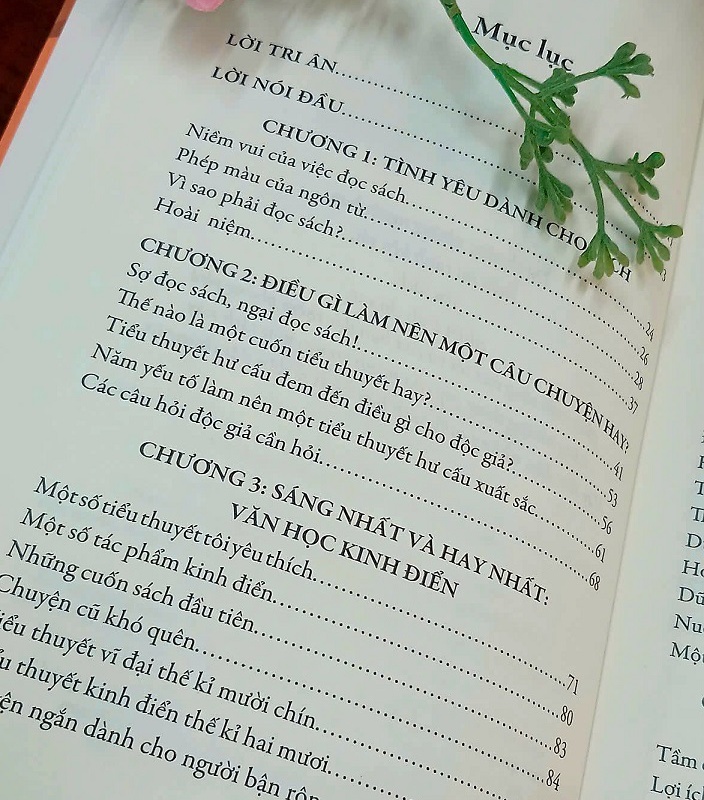 Mục lục
LỜI TRI ÂN..............................
LỜI NÓI ĐẦU..............................
CHƯƠNG 1: TÌNH YÊU DÀNH CHO
Niềm vui của việc đọc sách..............................24
Phép màu của ngôn từ..............................26
Vì sao phải đọc sách?..............................28
Hoài niệm..............................37
CHƯƠNG 2: ĐIỀU GÌ LÀM NÊN MỘT CÂU CHUYỆN HAY?
Sợ đọc sách, ngại đọc sách!..............................41
Thế nào là một cuốn tiểu thuyết hay?..............................53
Tiểu thuyết hư cấu đem đến điều gì cho độc giả?..............56
Năm yếu tố làm nên một tiểu thuyết hư cấu xuất sắc..........61
Các câu hỏi độc giả cần hỏi..............................68
CHƯƠNG 3: SÁNG NHẤT VÀ HAY NHẤT:
VĂN HỌC KINH ĐIỂN
Một số tiểu thuyết tôi yêu thích..............................71
Một số tác phẩm kinh điển..............................80
Những cuốn sách đầu tiên..............................83
Chuyện cũ khó quên..............................84
iểu thuyết vĩ đại thế kỉ mười chín..............................
ểu thuyết kinh điển thế kỉ hai mươi..............................
ện ngắn dành cho người bận rộn
Tầm
Lợi ích